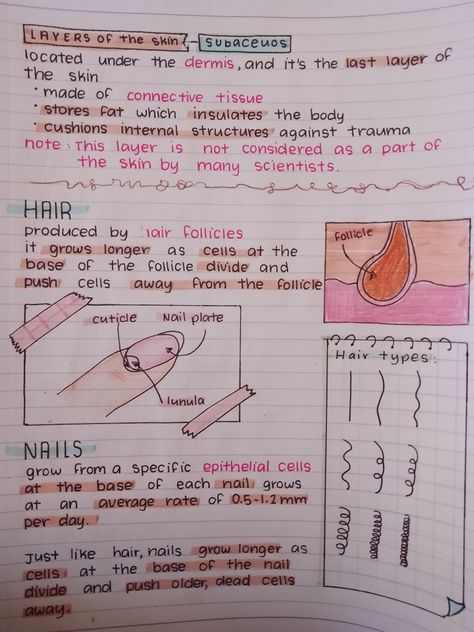 LAYERS OF THE SKIN - SUBACEUOS
located under the dermis, and it's the last layer of
the skin
• made of connective tissue
• stores fat which insulates the body
• cushions internal structures against trauma
note : This layer is not considered as a part of
the skin by many scientists.
HAIR
produced by hair follicles
it grows longer as cells at the
base of the follicle divide and
push cells away from the follicle
follicle
cuticle
nail plate
lunula
Hair types :
NAILS
grow from a specific epithelial cells
at the base of each nail grows
at an average rate of 0.5-1.2mm
per day.
Just like hair, nails grow longer as
cells at the base of the nail
divide and push older, dead cells
away.